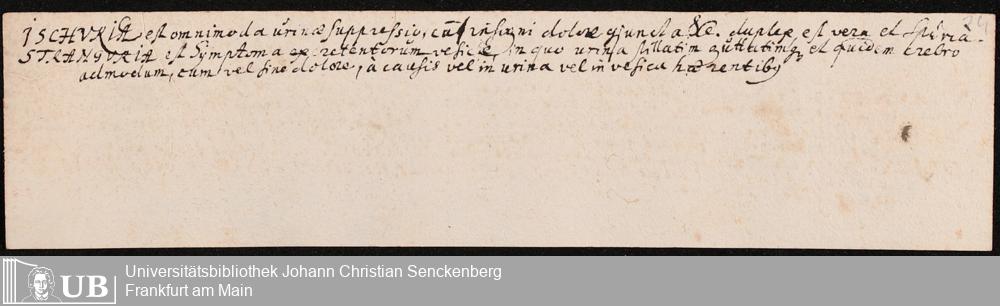 24
ISCHVRIA est omnimoda urinæ suppressio, cū insigni dolore cjuncta &c. duplex est vera et spuria.
STRANGVRIA est symptoma excretentorum vesicæ, in quo urina stillatim guttatimq et quidem crebro
admodum, cum vel sine dolore, à causis vel in urina vel in vesica hærentibq
Universitätsbibliothek Johann Christian Senckenberg
UB Frankfurt am Main